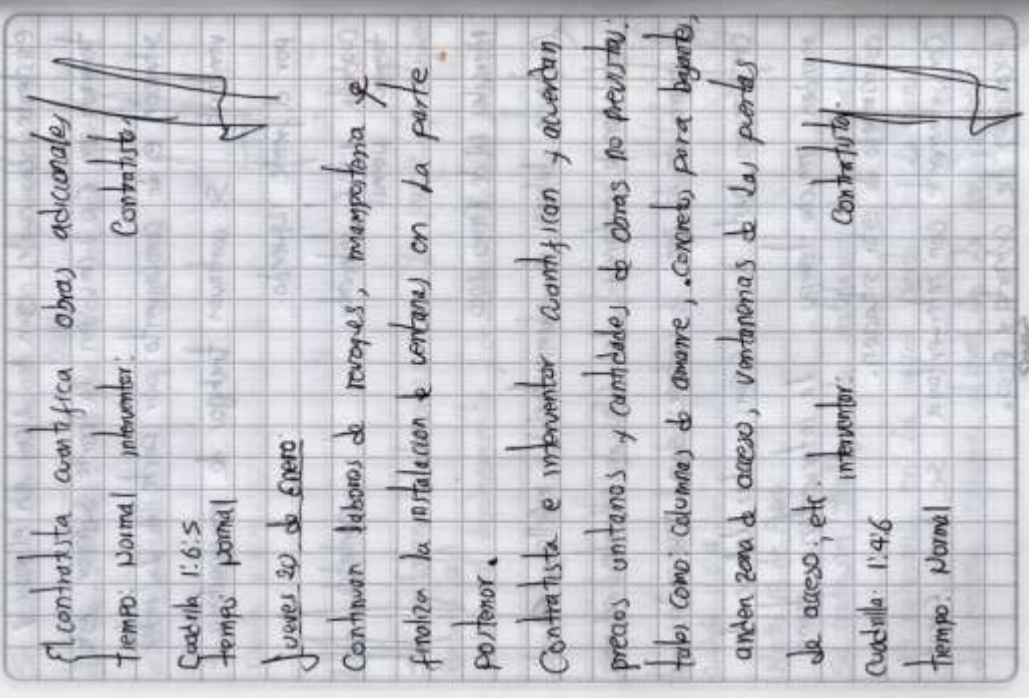 El contratista cuantifica obras adicionales
Tiempo: Normal interventor: Contratista
Cuadrilla 1:6:5
tiempo: normal
Jueves 20 de Enero:
Continuan labores de revoques, mamposteria y
finaliza la instalacion de ventanas en la parte
posterior.
Contratista e interventor cuantifican y acuerdan
precios unitarios y cantidades de obras no previstas:
tales como: columnas de amarre, concretos para bajantes,
anden zona de acceso, ventanerias de las puertas
de acceso; etc. interventor: Contratista:
Cuadrilla: 1:4:6
Tiempo: Normal